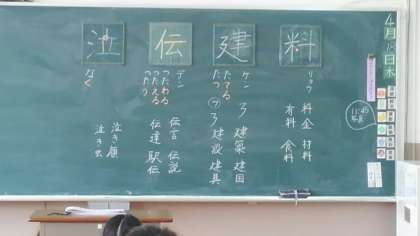 4月
日 木
料
リョウ
料金 材料
有料 食料
建
ケン
たてる
たつ
建築 建国
建設 建具
伝
デン
つたわる
つたえる
つたう
伝言 伝説
伝達 駅伝
泣
なく
泣き顔
泣き虫